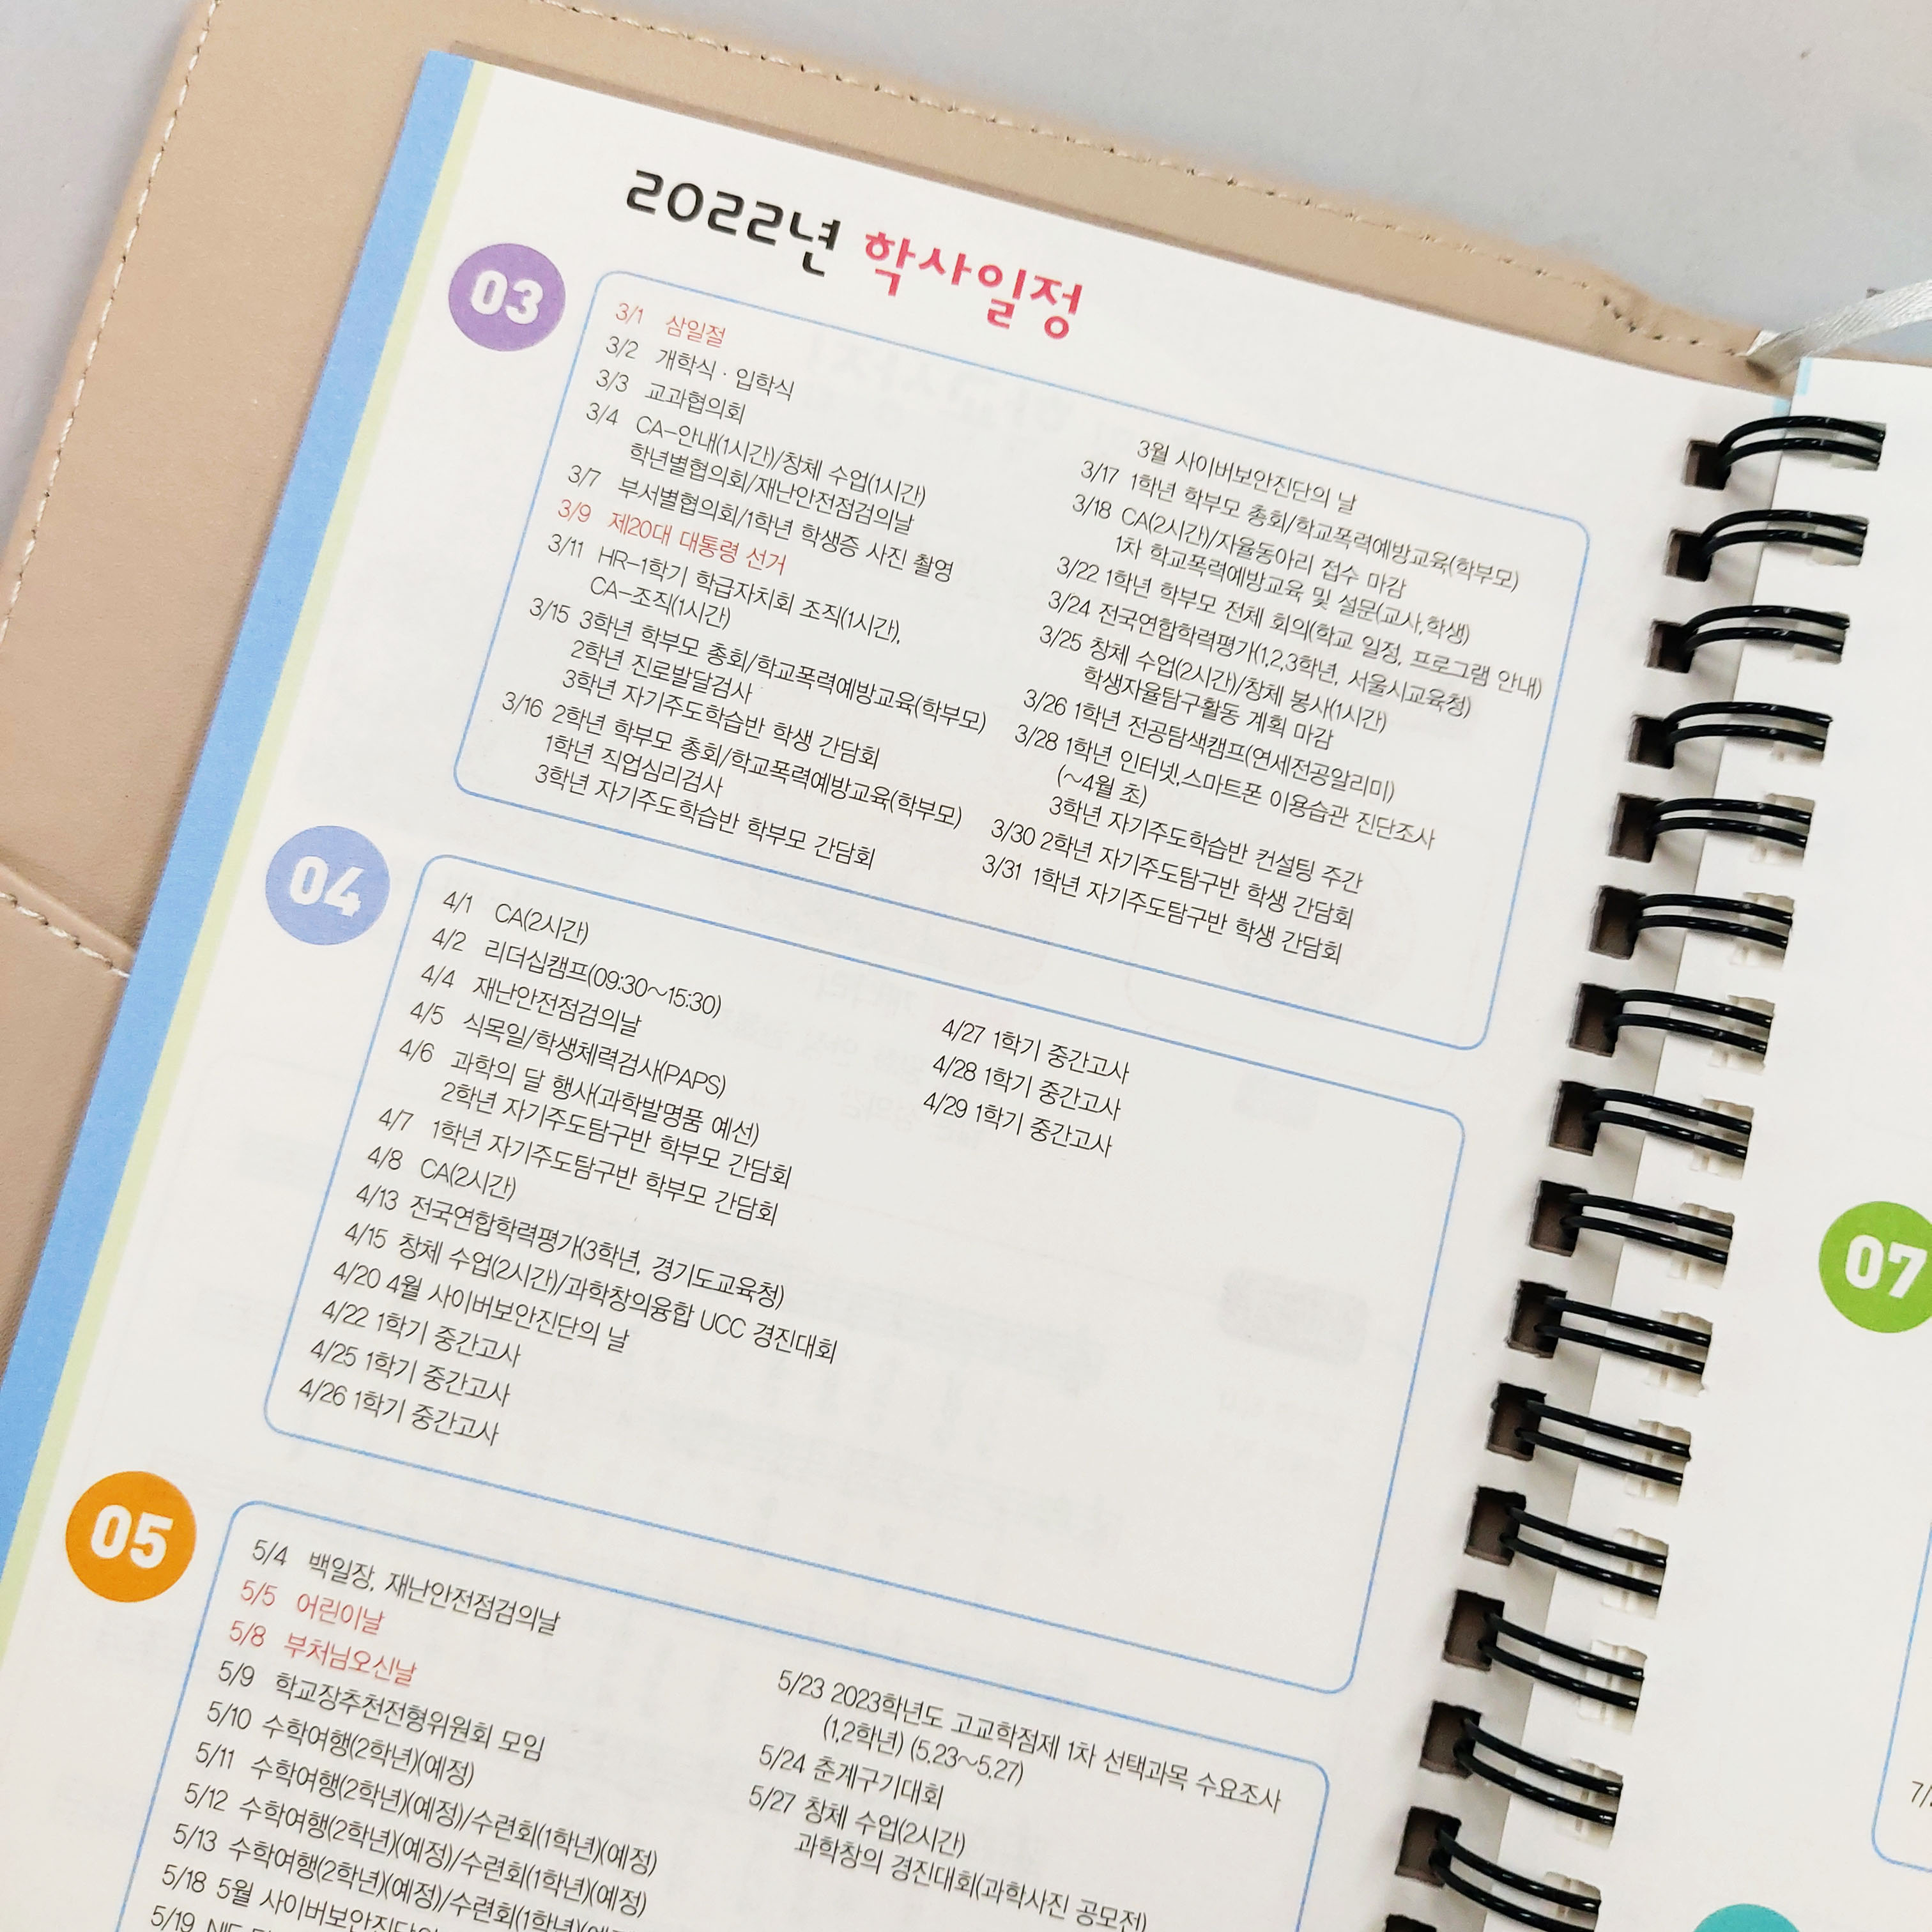 2022년 학사일정
03
3/1 삼일절
3/2 개학식 · 입학식
3/3 교과협의회
3/4 CA-안내(1시간)/창체 수업(1시간)
학년별협의회/재난안전점검의날
3/7 부서별협의회/1학년 학생증 사진 촬영
3/9 제20대 대통령 선거
3/11 HR-1학기 학급자치회 조직(1시간),
CA-조직(1시간)
3/15 3학년 학부모 총회/학교폭력예방교육(학부모)
2학년 진로발달검사
3학년 자기주도학습반 학생 간담회
3/16 2학년 학부모 총회/학교폭력예방교육(학부모)
1학년 직업심리검사
3학년 자기주도학습반 학부모 간담회
3월 사이버보안진단의 날
3/17 1학년 학부모 총회/학교폭력예방교육(학부모)
3/18 CA(2시간)/자율동아리 접수 마감
1차 학교폭력예방교육 및 설문(교사,학생)
3/22 1학년 학부모 전체 회의(학교 일정, 프로그램 안내)
3/24 전국연합학력평가(1,2,3학년, 서울시교육청)
3/25 창체 수업(2시간)/창체 봉사(1시간)
학생자율탐구활동 계획 마감
3/26 1학년 전공탐색캠프(연세전공알리미)
3/28 1학년 인터넷,스마트폰 이용습관 진단조사
(~4월 초)
3학년 자기주도학습반 컨설팅 주간
3/30 2학년 자기주도탐구반 학생 간담회
3/31 1학년 자기주도탐구반 학생 간담회
04
4/1 CA(2시간)
4/2 리더십캠프(09:30~15:30)
4/4 재난안전점검의날
4/5 식목일/학생체력검사(PAPS)
4/6 과학의 달 행사(과학발명품 예선)
2학년 자기주도탐구반 학부모 간담회
4/7 1학년 자기주도탐구반 학부모 간담회
4/8 CA(2시간)
4/13 전국연합학력평가(3학년, 경기도교육청)
4/15 창체 수업(2시간)/과학창의융합 UCC 경진대회
4/20 4월 사이버보안진단의 날
4/22 1학기 중간고사
4/25 1학기 중간고사
4/26 1학기 중간고사
4/27 1학기 중간고사
4/28 1학기 중간고사
4/29 1학기 중간고사
05
5/4 백일장, 재난안전점검의날
5/5 어린이날
5/8 부처님오신날
5/9 학교장추천전형위원회 모임
5/10 수학여행(2학년)(예정)
5/11 수학여행(2학년)(예정)/수련회(1학년)(예정)
5/12 수학여행(2학년)(예정)/수련회(1학년)(예정)
5/13 수학여행(2학년)(예정)/수련회(1학년)
5/18 5월 사이버보안진단의
5/19 NIE
5/23 2023학년도 고교학점제 1차 선택과목 수요조사
(1,2학년) (5.23~5.27)
5/24 춘계구기대회
5/27 창체 수업(2시간)
과학창의 경진대회(과학사진 공모전)
07
7/